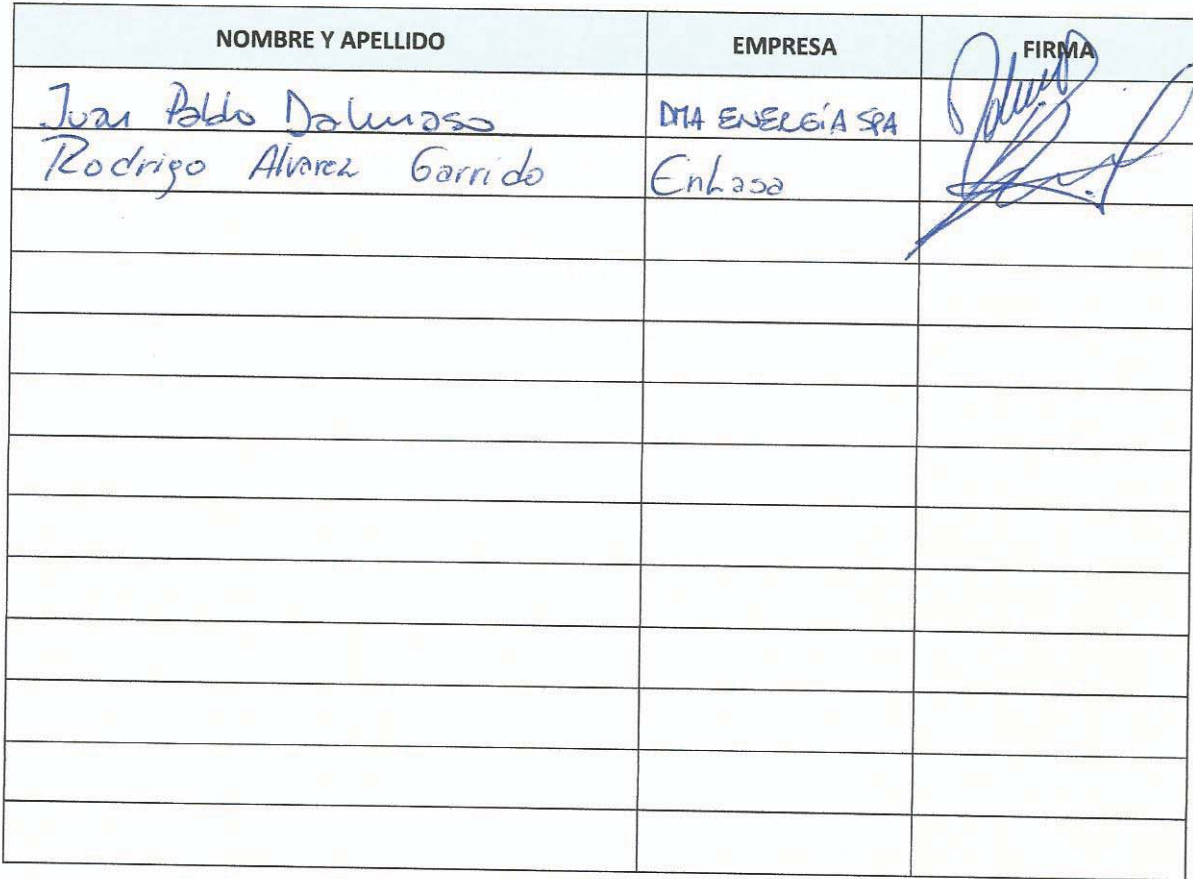 NOMBRE Y APELLIDO EMPRESA FIRMA
Juan Pablo Dalmaso DMA ENERGÍA SPA
Rodrigo Alvarez Garrido Enlasa